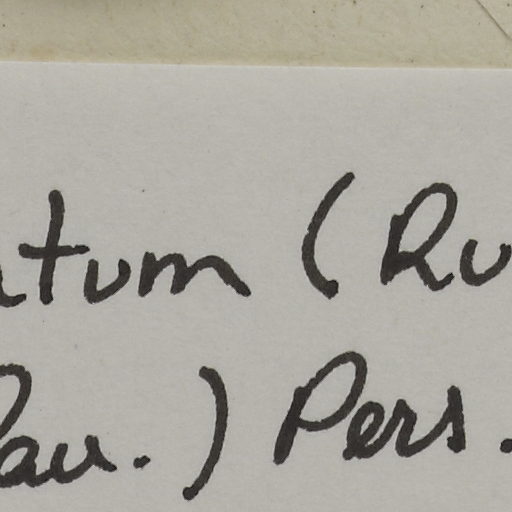 tum (Ru
Pav.) Pers.